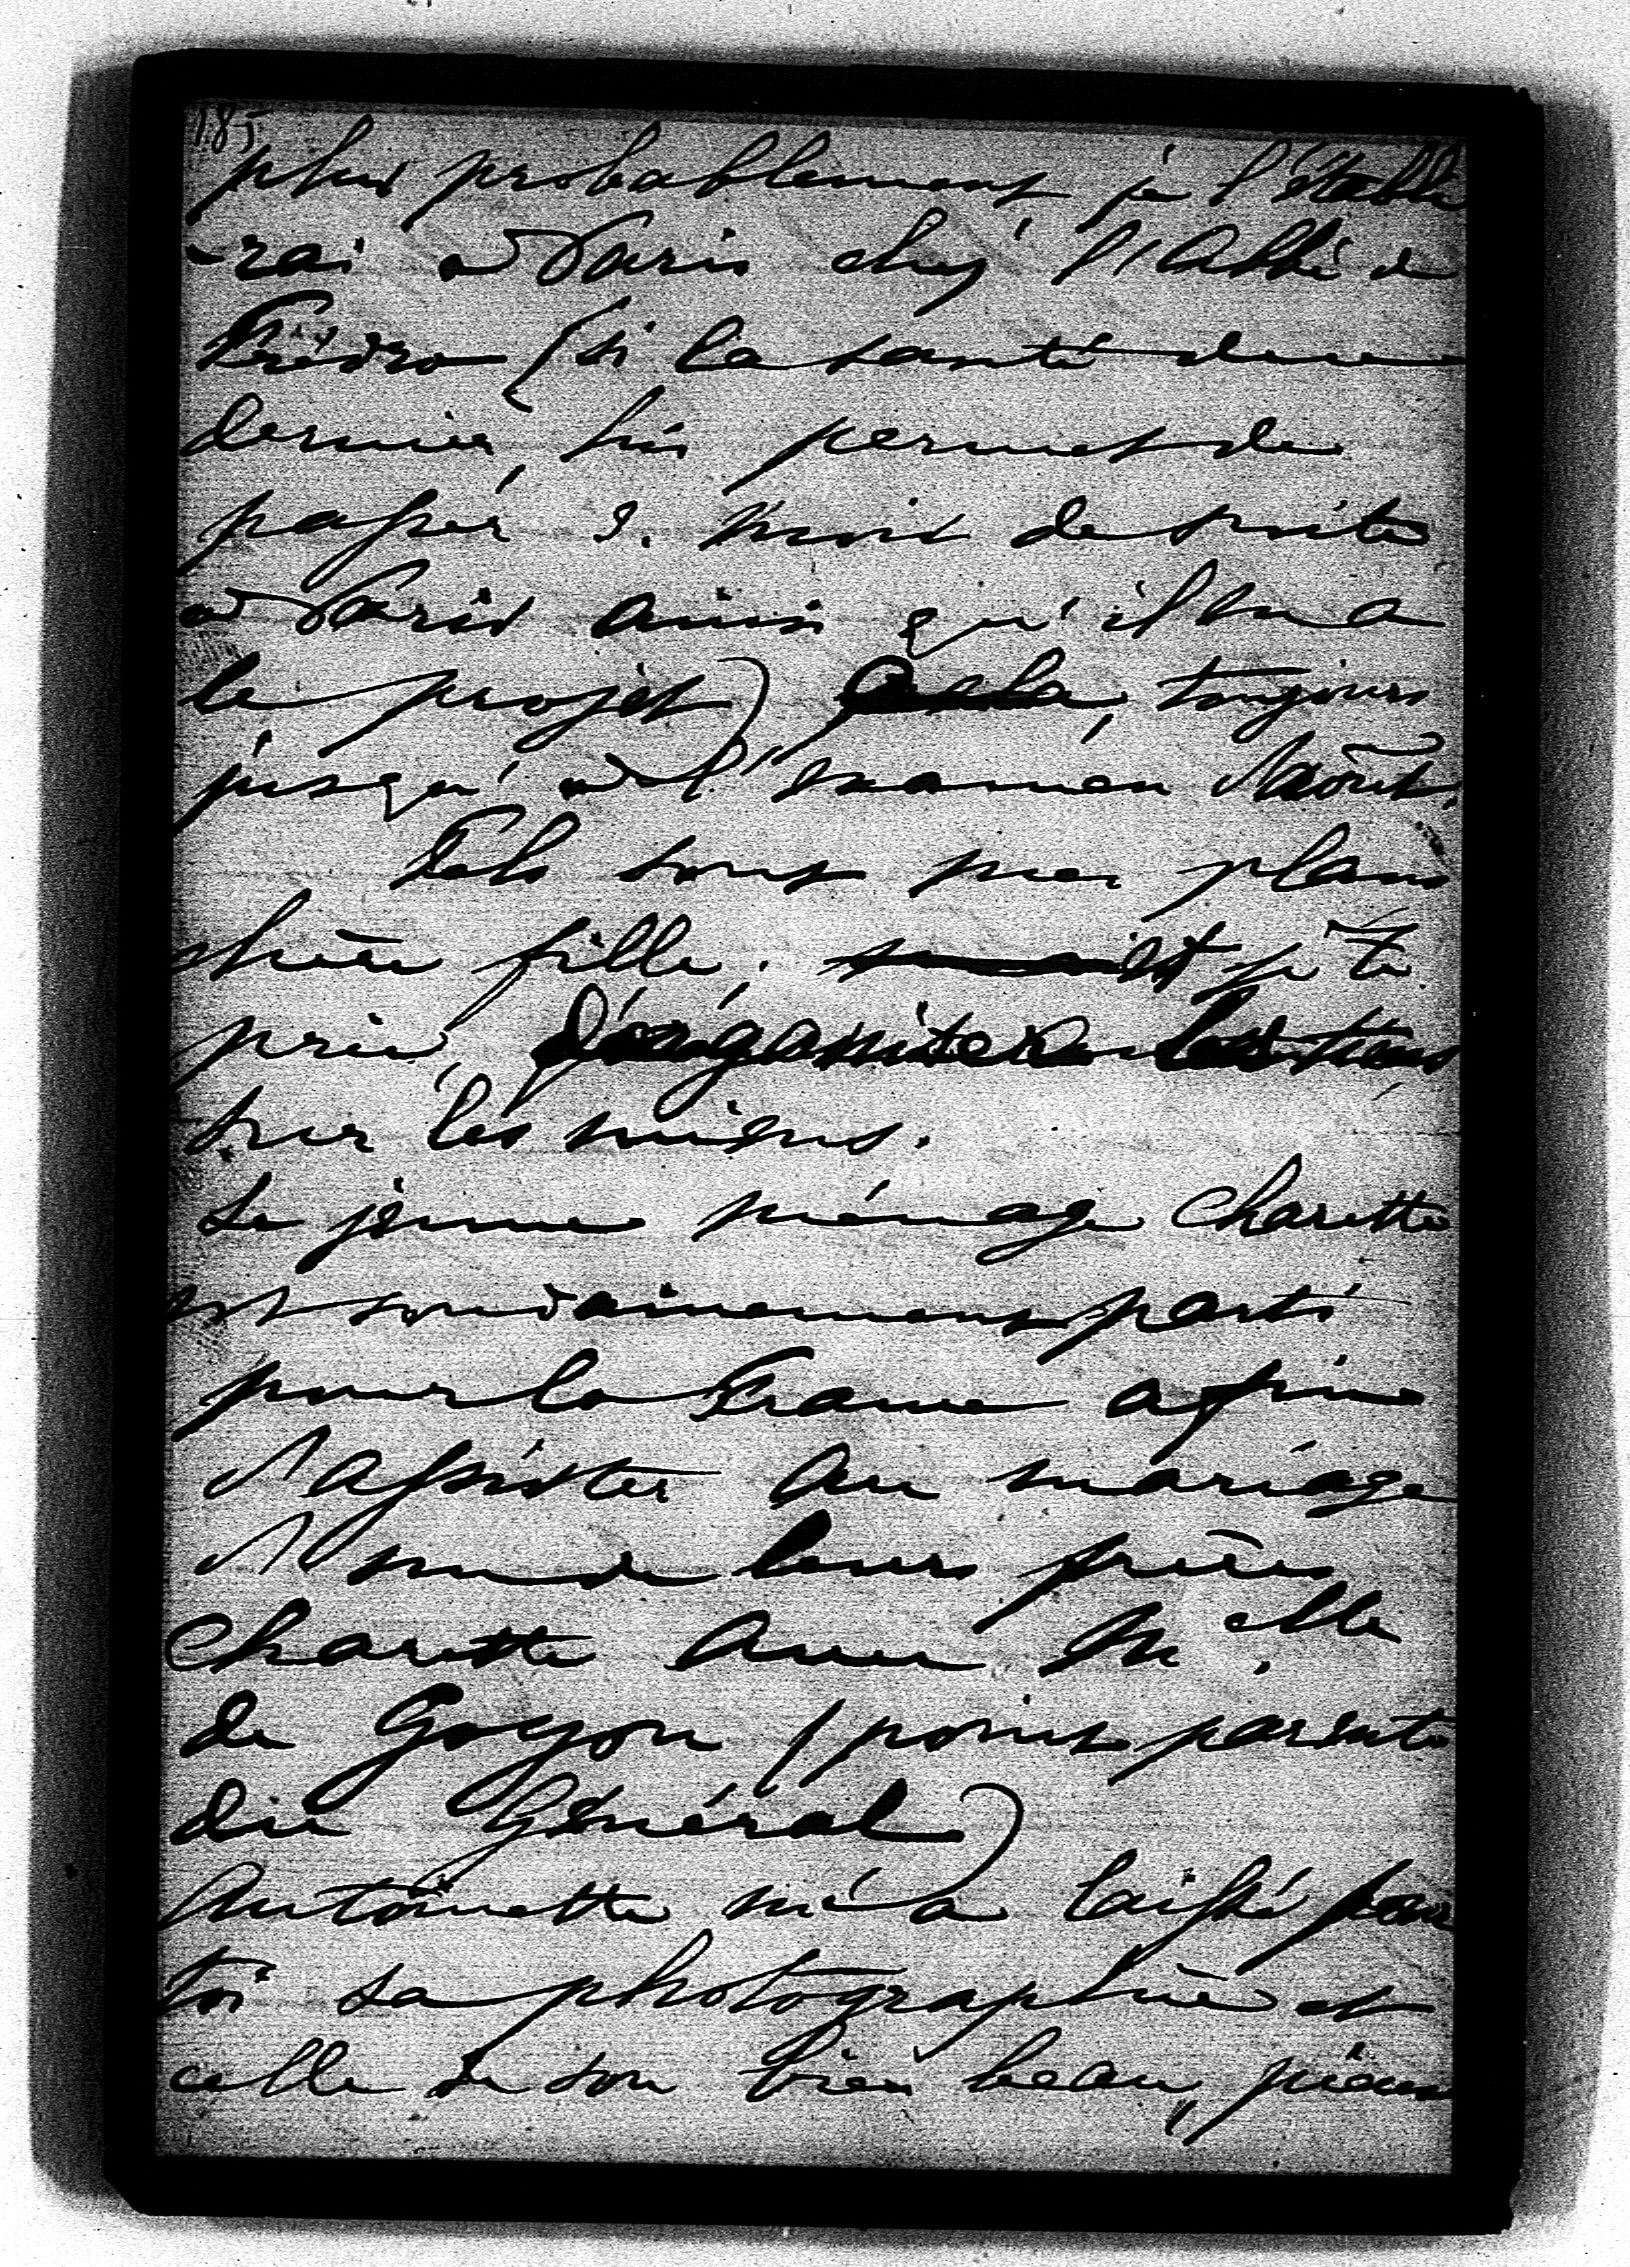 185
plus probablement je l'établi
-rai à Paris chez l'Abbé de
(si la santé de ce
dernier, lui permet de
passer 3. mois de suite
à Paris ainsi qu'il en a
le projet) Cela, toujours
jusqu'à l'examen d'août.
Tels sont mes plans
chère fille. et je te
prie, d'organiser les tiens
sur les miens.
Le jeune ménage Charette
est soudainement parti
pour la France afin
d'assister au mariage
d'un de leurs frères
Charette avec M.elle
de Goyon (point parente
du Général)
Antoinette m'a laissé pour
toi sa photographie et
celle de son bien beau, pieux